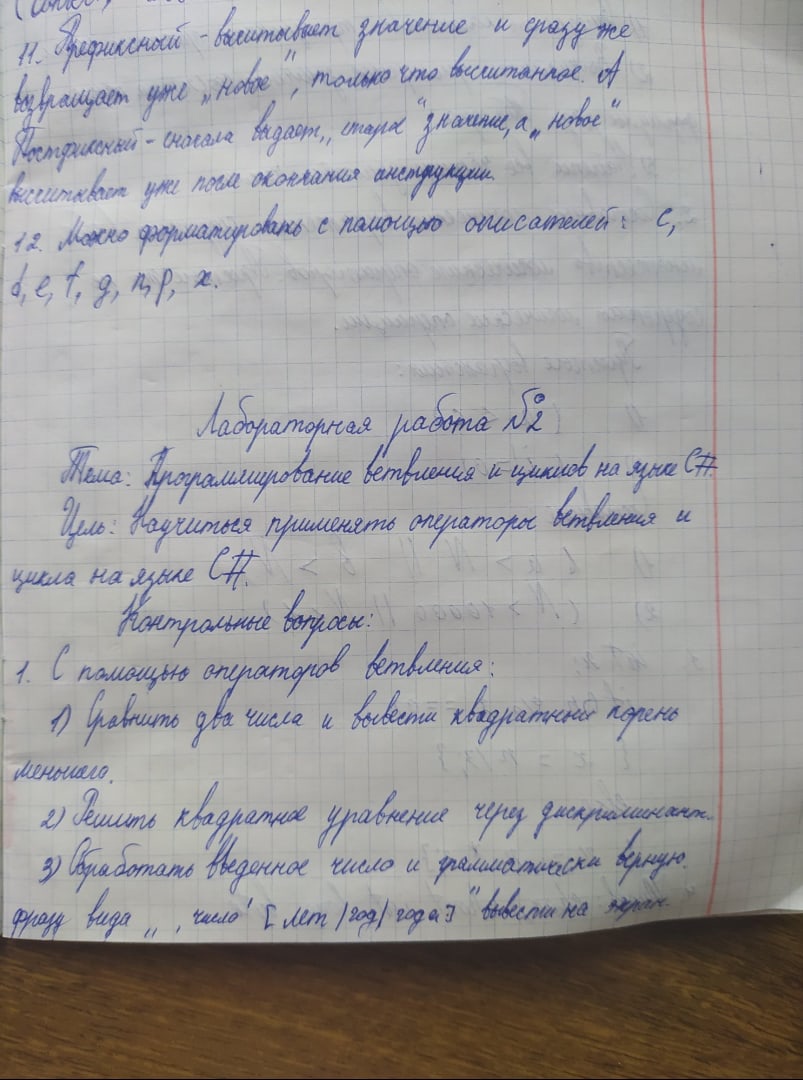 11. Префиксный - высчитывает значение и сразу же
возвращает уже „новое", только что высчитанное. А
Постфиксный - сначала выдает „старое" значение, а „новое"
высчитывает уже после окончания инструкции.
12. Можно форматировать с помощью описателей: c,
d, e, f, g, n, p, x.
Лабораторная работа №2
Тема: Программирование ветвления и циклов на языке C#.
Цель: Научиться применять операторы ветвления и
цикла на языке C#.
Контрольные вопросы:
1. С помощью операторов ветвления:
1) Сравнить два числа и вывести квадратный корень
меньшего.
2) Решить квадратное уравнение через дискриминант.
3) Обработать введенное число и грамматически верную
фразу вида „ 'число' [лет/год/года]" вывести на экран.